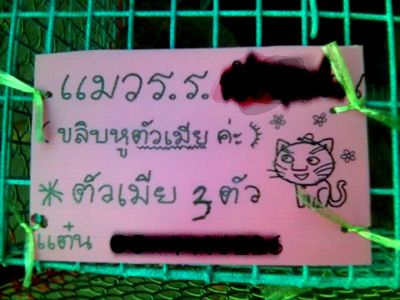 แมวร.ร.
(ขลิบหูตัวเมีย ค่ะ)
* ตัวเมีย 3 ตัว
แต๋น